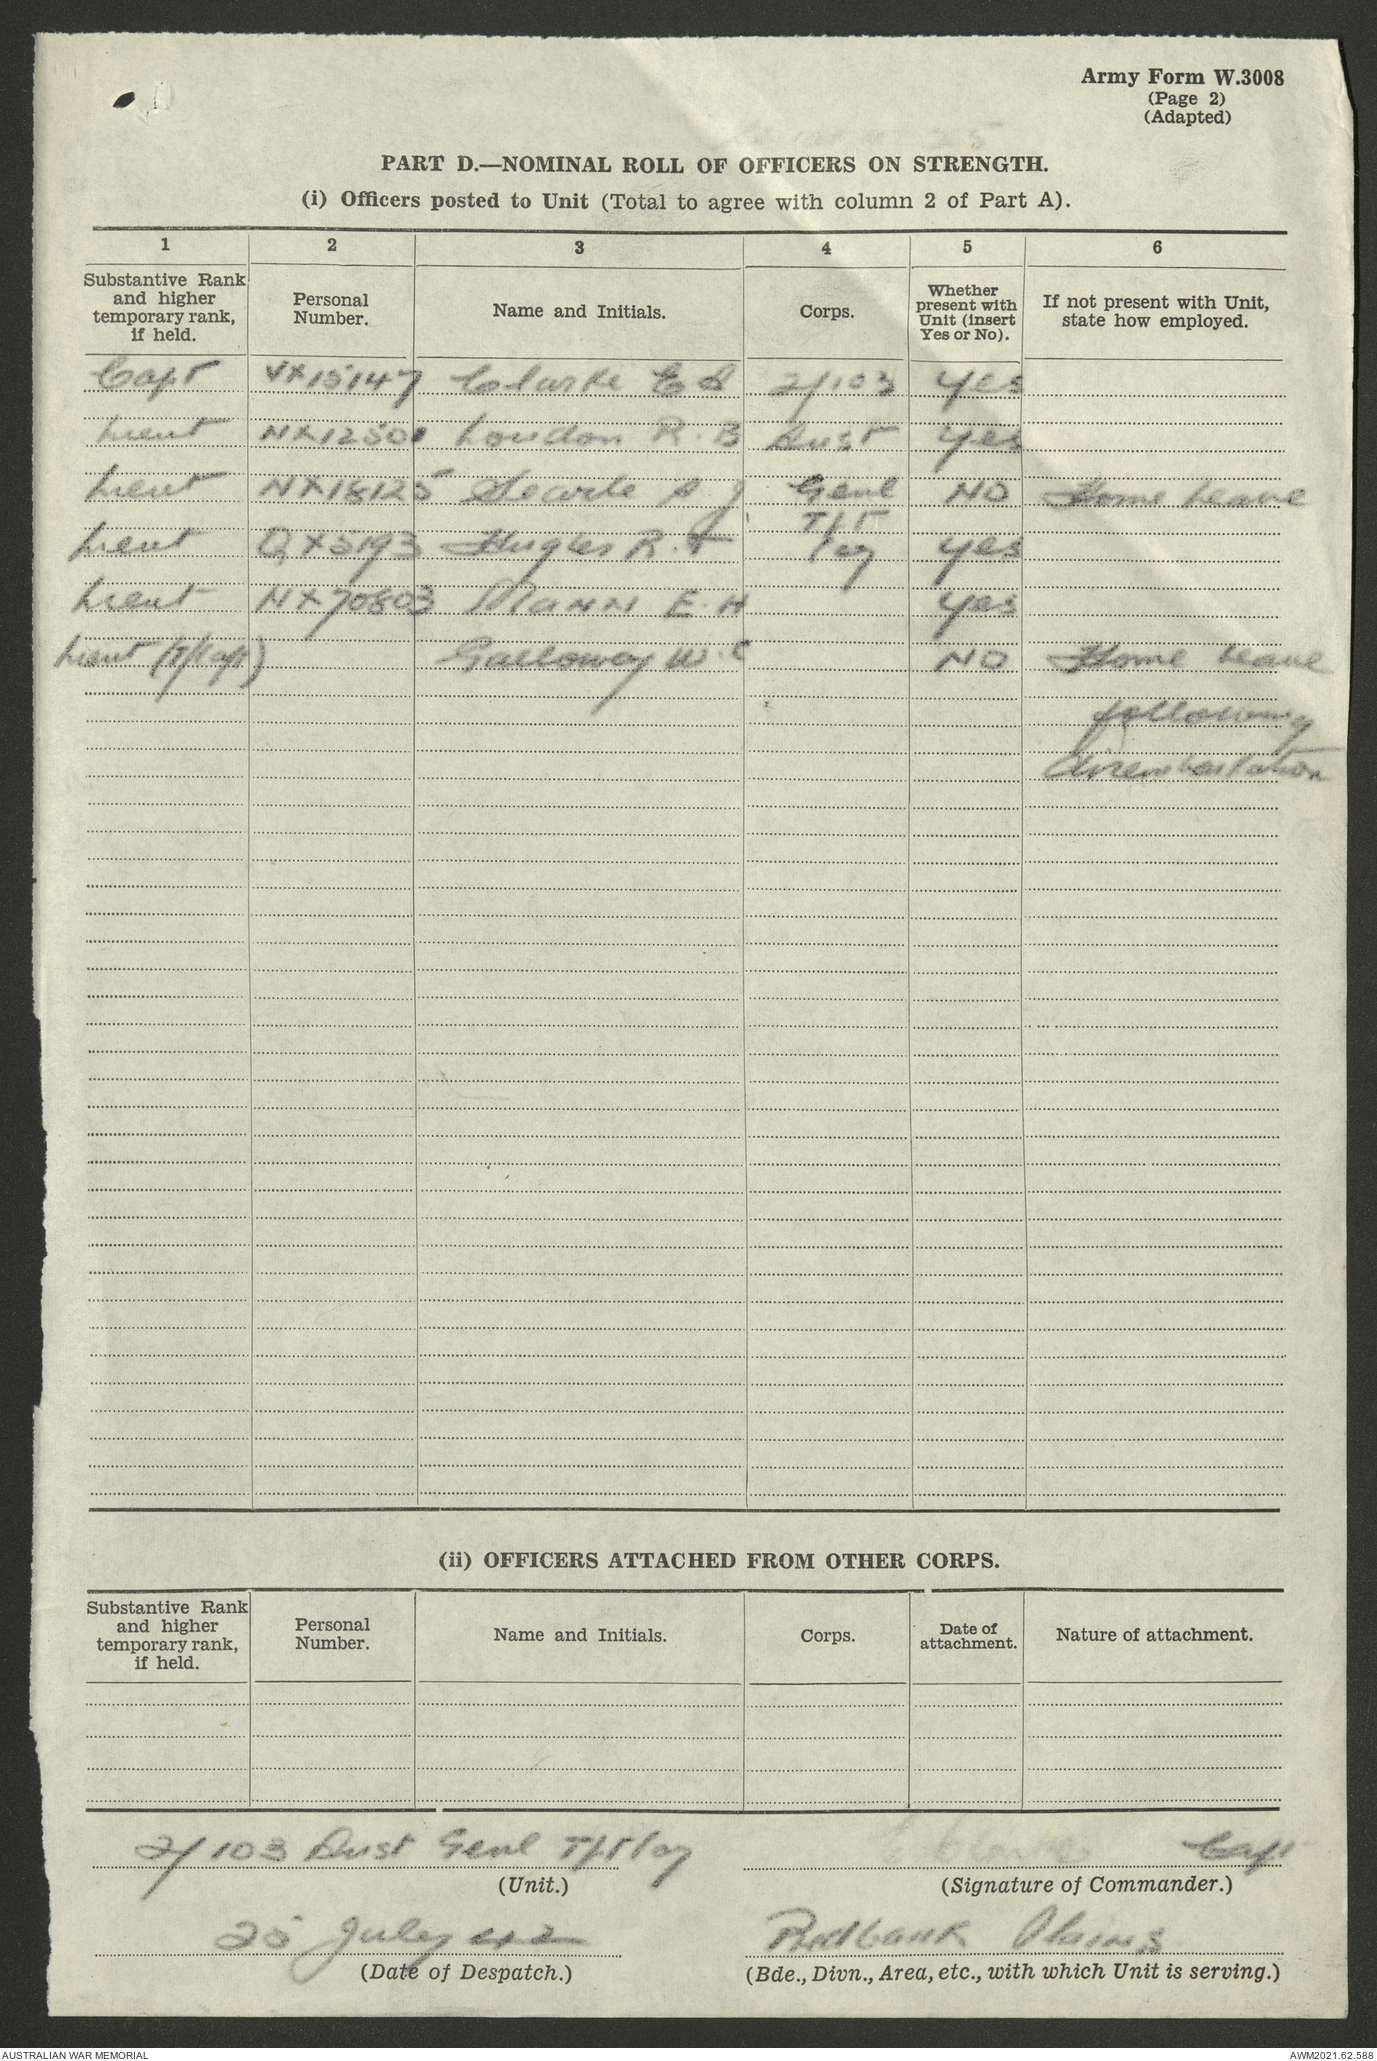 Army Form W.3008
(Page 2)
(Adapted)
PART D.—NOMINAL ROLL OF OFFICERS ON STRENGTH.
(i) Officers posted to Unit (Total to agree with column 2 of Part A).
1 2 3 4 5 6
Substantive Rank and higher temporary rank, if held. Personal Number. Name and Initials. Corps. Whether present with Unit (insert Yes or No). If not present with Unit, state how employed.
Capt VX15147 Clarke E S 2/103 Yes
Lieut NX12500 Loudon R. B Aust Yes
Lieut NX18125 Searle A. J Genl NO Home Leave
Tpt
Lieut QX5193 Hughes R. Coy Yes
Lieut NX70803 Mann E. H Yes
Lieut (T/Capt) Galloway W. C NO Home Leave
following
disembarkation
(ii) OFFICERS ATTACHED FROM OTHER CORPS.
Substantive Rank and higher temporary rank, if held. Personal Number. Name and Initials. Corps. Date of attachment. Nature of attachment.
2/103 Aust Genl Tpt Coy Capt
(Unit.) (Signature of Commander.)
25 July 42 Redbank Plains
(Date of Despatch.) (Bde., Divn., Area, etc., with which Unit is serving.)
AUSTRALIAN WAR MEMORIAL AWM2021.62.588